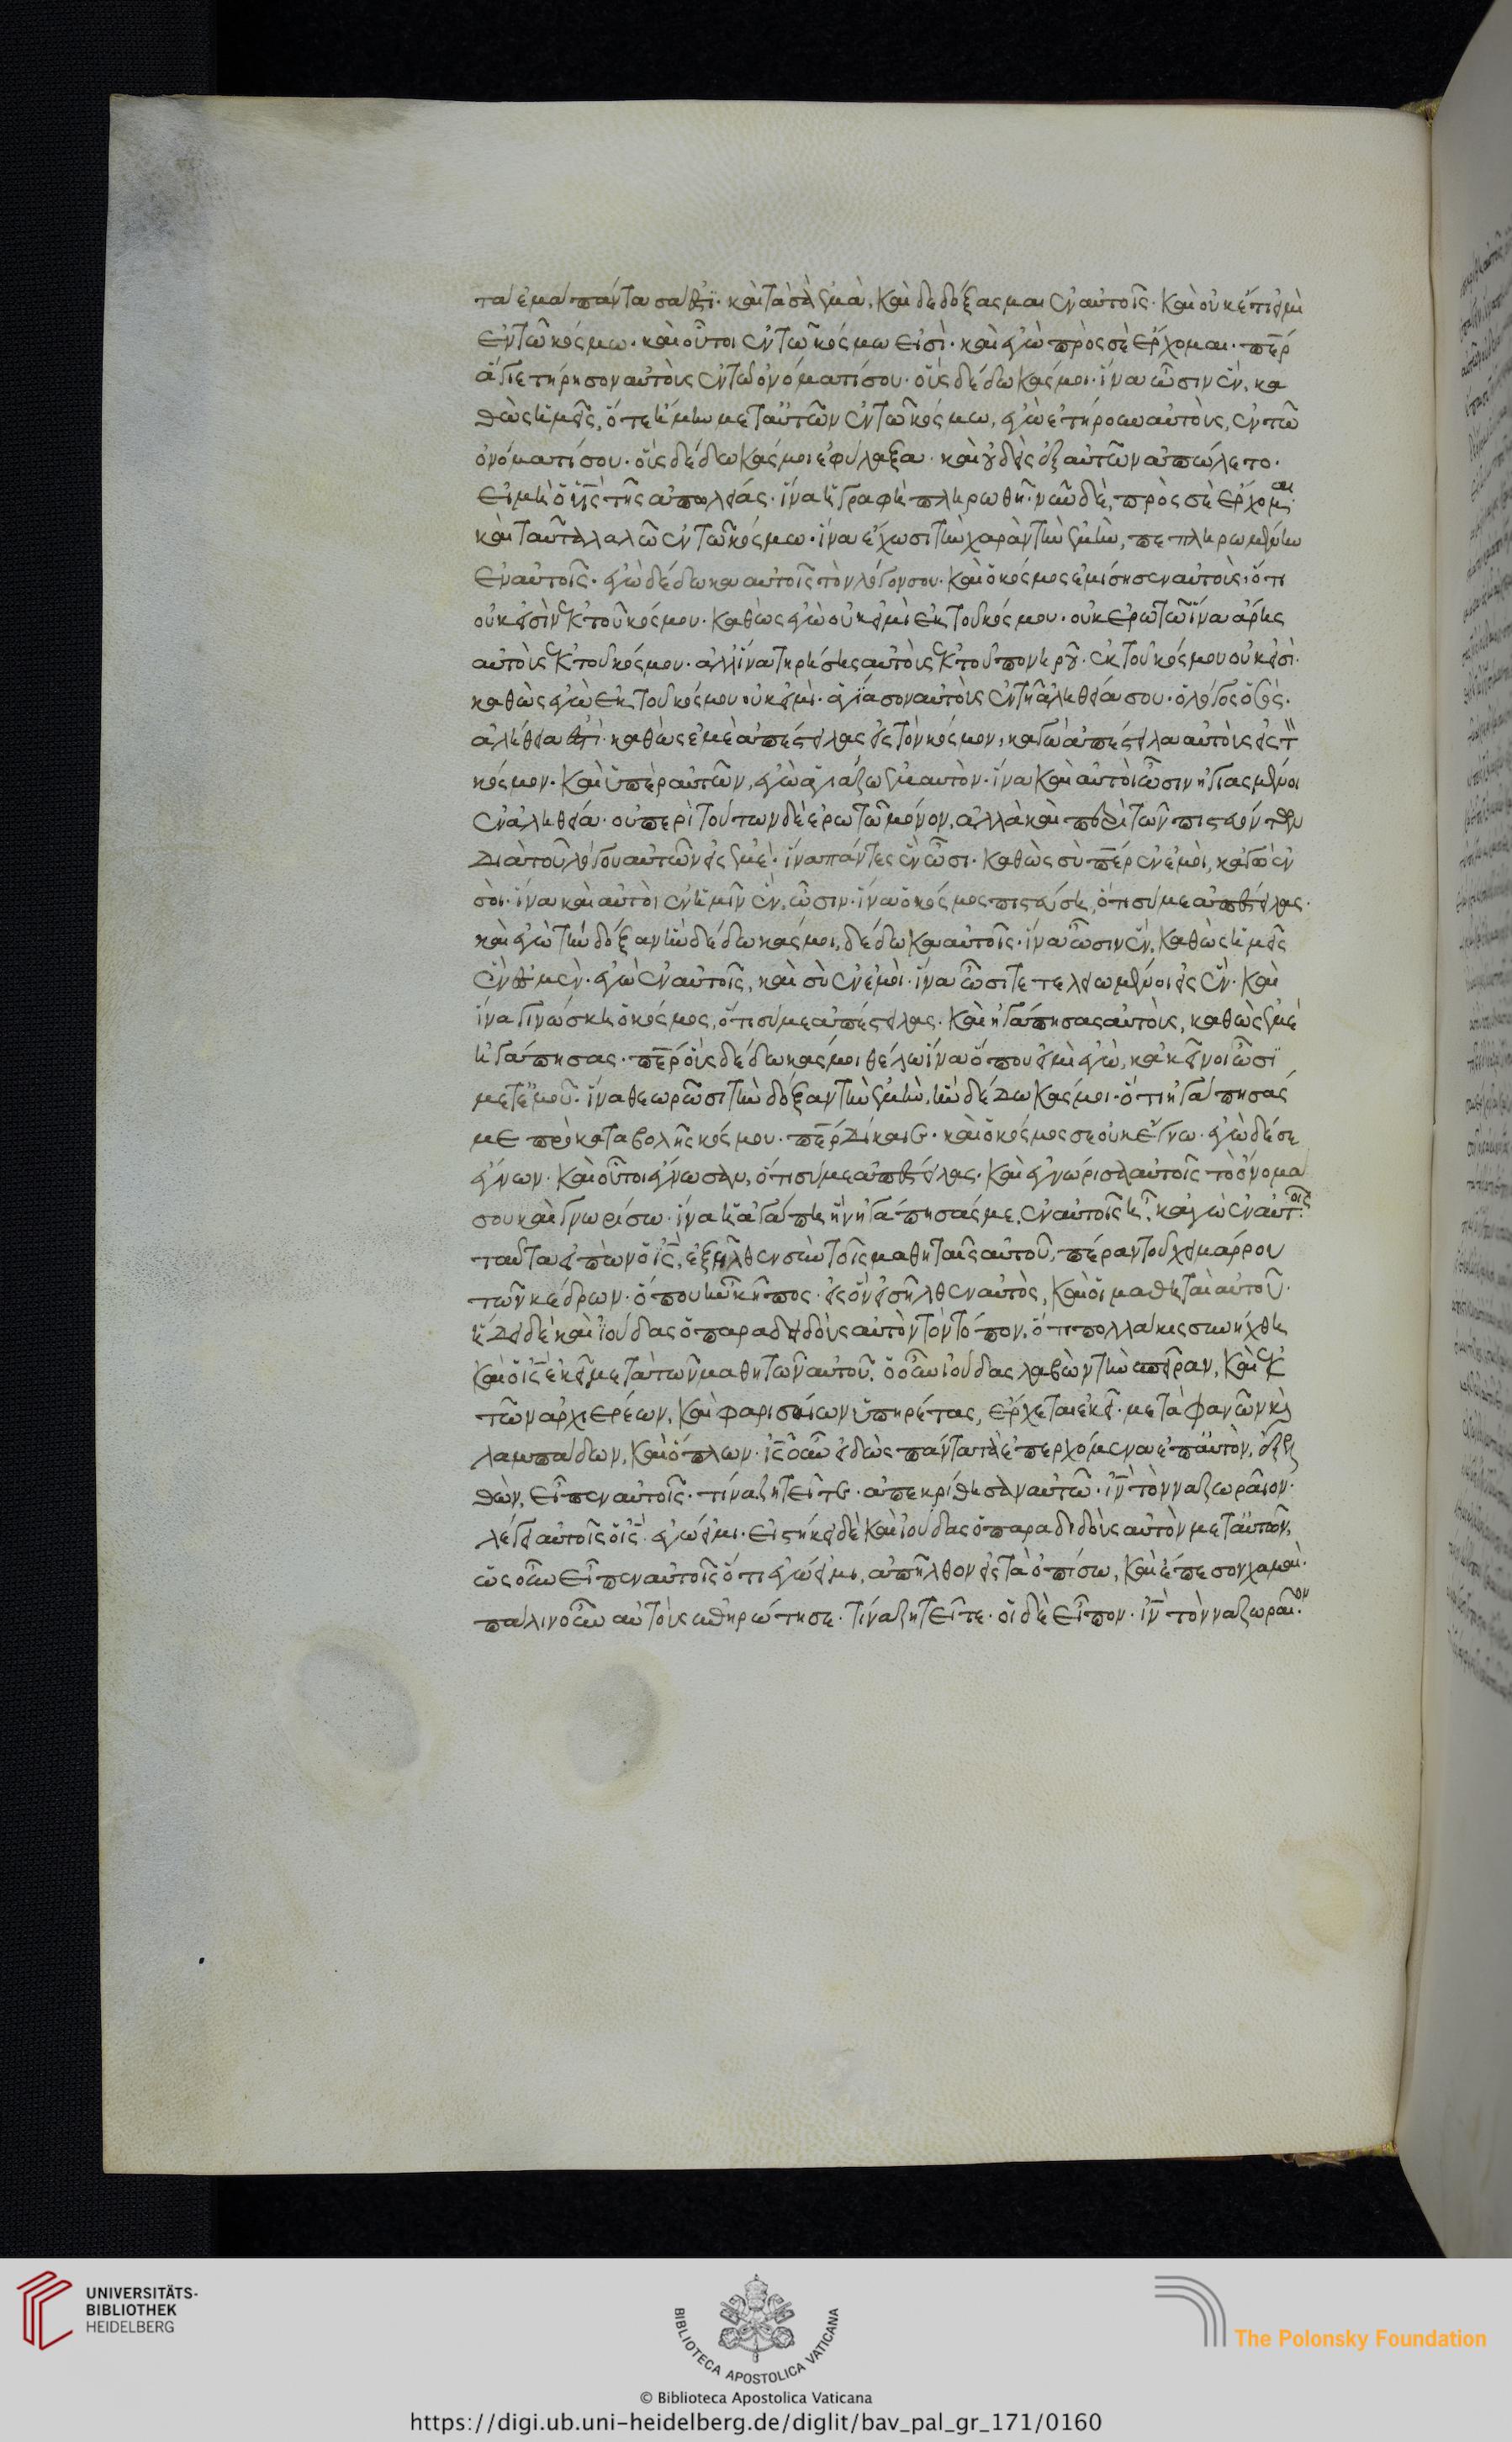 τα ἐμα πάντα σα ἐστϊ· καὶ τὰ σὰ ἐμὰ, καὶ δεδόξασμαι ἐν αὐτοῖς· καὶ οὐκέτι εἰμὶ
ἐν τῶ κόσμω· καὶ οὗτοι ἐν τῶ κόσμω εἰσὶ· καὶ ἐγὼ πρὸς σὲ ἔρχομαι· περ
ἅγιε τήρησον αὐτοὺς ἐν τῶ ὀνόματί σου· οὓς δέδωκάς μοι· ἵνα ὦσιν ἓν, κα
θὼς ἡμεῖς, ὅτε ἤμην μετ αὐτῶν ἐν τῶ κόσμω, ἐγὼ ἐτήρουν αὐτοὺς, ἐν τῶ
ὀνόματί σου· οὓς δέδωκάς μοι ἐφύλαξα· καὶ οὐδεὶς ἐξ αὐτῶν ἀπώλετο·
εἰ μὴ ὁ υἱς τῆς ἀπωλείας· ἵνα ἡ γραφὴ πληρωθῆ· νῦν δὲ, πρὸς σὲ ἔρχομαι·
καὶ ταῦτα λαλῶ ἐν τῶ κόσμω· ἵνα ἔχωσι τὴν χαρὰν τὴν ἐμὴν, πεπληρωμένην
ἐν αὐτοῖς· ἐγὼ δέδωκα αὐτοῖς τὸν λόγον σου· καὶ ὁ κόσμος ἐμίσησεν αὐτοὺς· ὅτι
οὐκ εἰσὶν ἐκ τοῦ κόσμου· καθὼς ἐγὼ οὐκ εἰμὶ ἐκ τοῦ κόσμου· οὐκ ἐρωτῶ ἵνα ἄρης
αὐτοὺς ἐκ τοῦ κόσμου· ἀλλ ἵνα τηρήσης αὐτοὺς ἐκ τοῦ πονηροῦ· ἐκ τοῦ κόσμου οὐκ εἰσὶ·
καθὼς ἐγὼ ἐκ τοῦ κόσμου οὐκ εἰμὶ· ἁγίασον αὐτοὺς ἐν τῆ ἀληθεία σου· ὁ λόγος ὁ σὸς·
ἀλήθεια ἐστὶ· καθὼς ἐμὲ ἀπέστειλας εἰς τὸν κόσμον, καγὼ ἀπέστειλα αὐτοὺς εἰς τὸν
κόσμον· καὶ ὑπὲρ αὐτῶν, ἐγὼ ἁγιάζω ἐμαυτὸν· ἵνα καὶ αὐτοὶ ὦσιν ἡγιασμένοι
ἐν ἀληθεία· οὐ περὶ τούτων δὲ ἐρωτῶ μόνον, ἀλλὰ καὶ περὶ τῶν πιστευόντων
διὰ τοῦ λόγου αὐτῶν εἰς ἐμὲ· ἵνα πάντες ἓν ὦσι· καθὼς σὺ περ ἐν ἐμοὶ, καγὼ ἐν
σοὶ· ἵνα καὶ αὐτοὶ ἐν ἡμῖν ἓν, ὦσιν· ἵνα ὁ κόσμος πιστεύση, ὅτι σύ με ἀπέστειλας·
καὶ ἐγὼ τὴν δόξαν ἣν δέδωκάς μοι, δέδωκα αὐτοῖς· ἵνα ὦσιν ἓν, καθὼς ἡμεῖς
ἓν ἐσμὲν· ἐγὼ ἐν αὐτοῖς, καὶ σὺ ἐν ἐμοὶ· ἵνα ὦσι τετελειωμένοι εἰς ἓν· καὶ
ἵνα γινώσκη ὁ κόσμος, ὅτι σύ με ἀπέστειλας· καὶ ἠγάπησας αὐτοὺς, καθὼς ἐμὲ
ἠγάπησας· περ οὓς δέδωκάς μοι θέλω ἵνα ὅπου εἰμὶ ἐγὼ, κακεῖνοι ὦσϊ
μετ ἐμοῦ· ἵνα θεωρῶσι τὴν δόξαν τὴν ἐμὴν, ἣν δέδωκάς μοι· ὅτι ἠγάπησάς
με πρὸ καταβολῆς κόσμου· περ δίκαιε· καὶ ὁ κόσμος σε οὐκ ἔγνω· ἐγὼ δέ σε
ἔγνων· καὶ οὗτοι ἔγνωσαν, ὅτι σύ με ἀπέστειλας· καὶ ἐγνώρισα αὐτοῖς τὸ ὄνομα
σου καὶ γνωρίσω· ἵνα ἡ ἀγάπη ἣν ἠγάπησάς με, ἐν αὐτοῖς ἦ, καγὼ ἐν αὐτοῖς·
ταῦτα εἰπὼν ὁ ις, ἐξῆλθεν σὺν τοῖς μαθηταῖς αὐτοῦ, πέραν τοῦ χειμάρρου
τῶν κέδρων· ὅπου ἦν κῆπος· εἰς ὃν εἰσῆλθεν αὐτὸς, καὶ οἱ μαθηταὶ αὐτοῦ·
ἤδει δὲ καὶ ϊούδας ὁ παραδιδοὺς αὐτὸν τὸν τόπον, ὅτι πολλακις συνήχθη
καὶ ὁ ις ἐκεῖ μετὰ τῶν μαθητῶν αὐτοῦ. ὁ οὖν ιούδας λαβὼν τὴν σπεῖραν, καὶ ἐκ
τῶν ἀρχιερέων, καὶ φαρισαίων ὑπηρέτας, ἔρχεται ἐκεῖ· μετὰ φανῶν καὶ
λαμπάδων, καὶ ὅπλων· ις οὖν εἰδὼς πάντα τὰ ἐπερχόμενα ἐπ αὐτὸν, ἐξελ
θὼν, εἶπεν αὐτοῖς· τίνα ζητεῖτε· ἀπεκρίθησαν αὐτῶ· ιν τὸν ναζωραῖον·
λέγει αὐτοῖς ὁ ις· ἐγώ εἰμι· εἱστήκει δὲ καὶ ἰούδας ὁ παραδιδοὺς αὐτὸν μετ αὐτῶν,
ὡς οὖν εἶπεν αὐτοῖς ὅτι ἐγώ εἰμι, ἀπῆλθον εἰς τὰ ὀπίσω, καὶ ἔπεσον χαμαὶ·
πάλιν οὖν αὐτοὺς ἐπηρώτησε· τίνα ζητεῖτε· οἱ δὲ εἶπον· ιν τὸν ναζωραῖον·
UNIVERSITÄTS-
BIBLIOTHEK
HEIDELBERG
BIBLIOTECA APOSTOLICA VATICANA
The Polonsky Foundation
© Biblioteca Apostolica Vaticana
https://digi.ub.uni-heidelberg.de/diglit/bav_pal_gr_171/0160